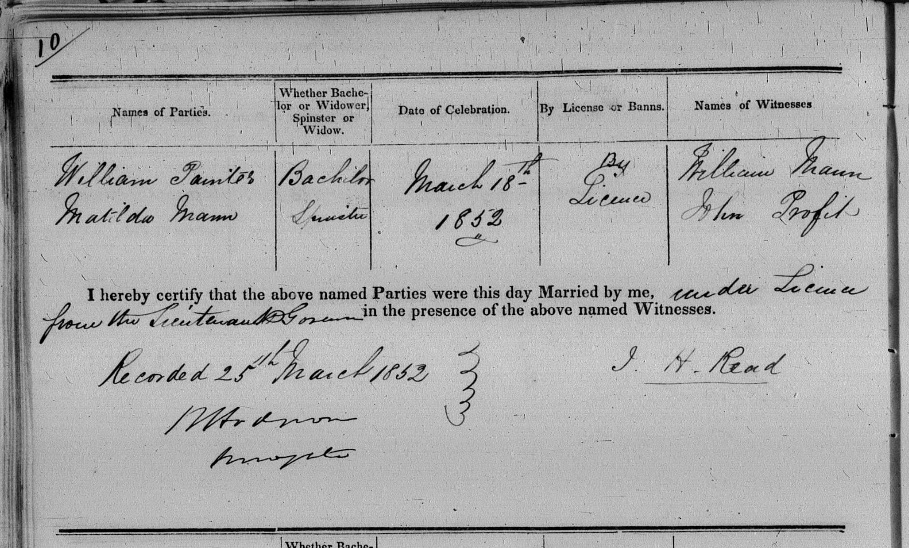 10
Names of Parties.
Whether Bache-
lor or Widower,
Spinster or
Widow.
Date of Celebration.
By License or Banns.
Names of Witnesses
William Painter Bachilor March 18th By William Mann
Matilda Mann Spinster 1852 Licence John Profit
I hereby certify that the above named Parties were this day Married by me, under Licence
from the Lieutenant Govern in the presence of the above named Witnesses.
Recorded 25th March 1852
J. H. Read
Whether Bache-